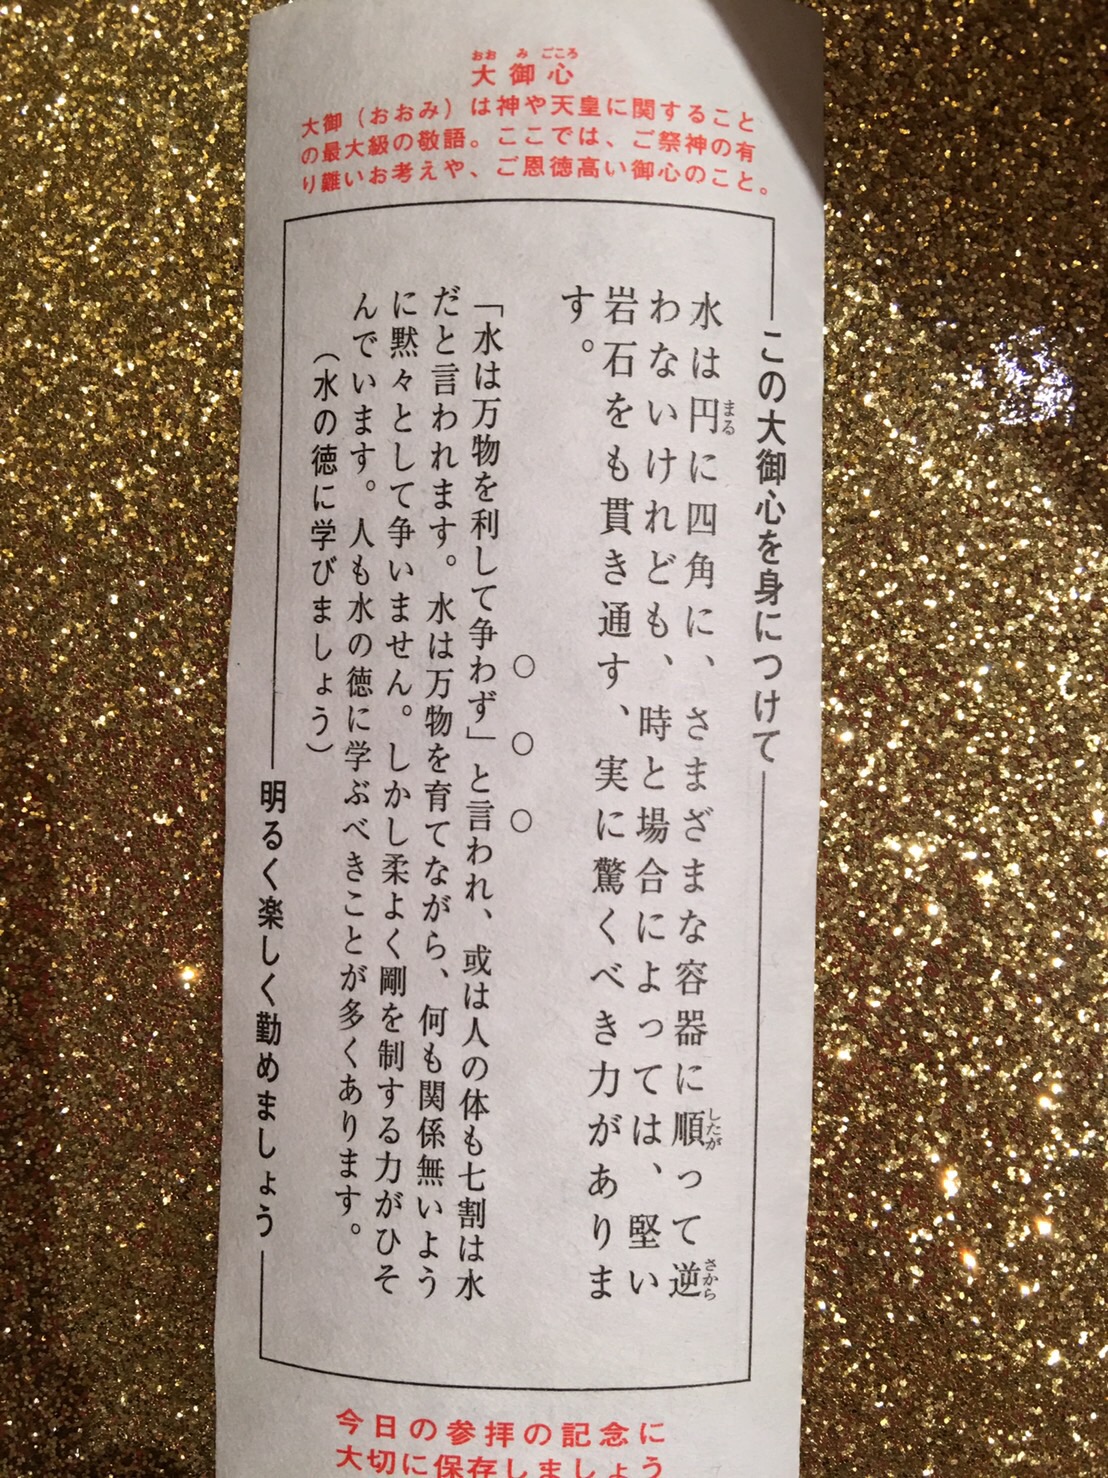 おおみごころ
大御心
大御（おおみ）は神や天皇に関すること
の最大級の敬語。ここでは、ご祭神の有
り難いお考えや、ご恩徳高い御心のこと。
この大御心を身につけて
水は円に四角に、さまざまな容器に順って逆
まる
したが
さから
わないけれども、時と場合によっては、堅い
岩石をも貫き通す、実に驚くべき力がありま
す。
○○○
「水は万物を利して争わず」と言われ、或は人の体も七割は水
だと言われます。水は万物を育てながら、何も関係無いよう
に黙々として争いません。しかし柔よく剛を制する力がひそ
んでいます。人も水の徳に学ぶべきことが多くあります。
（水の徳に学びましょう）
明るく楽しく勤めましょう
今日の参拝の記念に
大切に保存しましょう